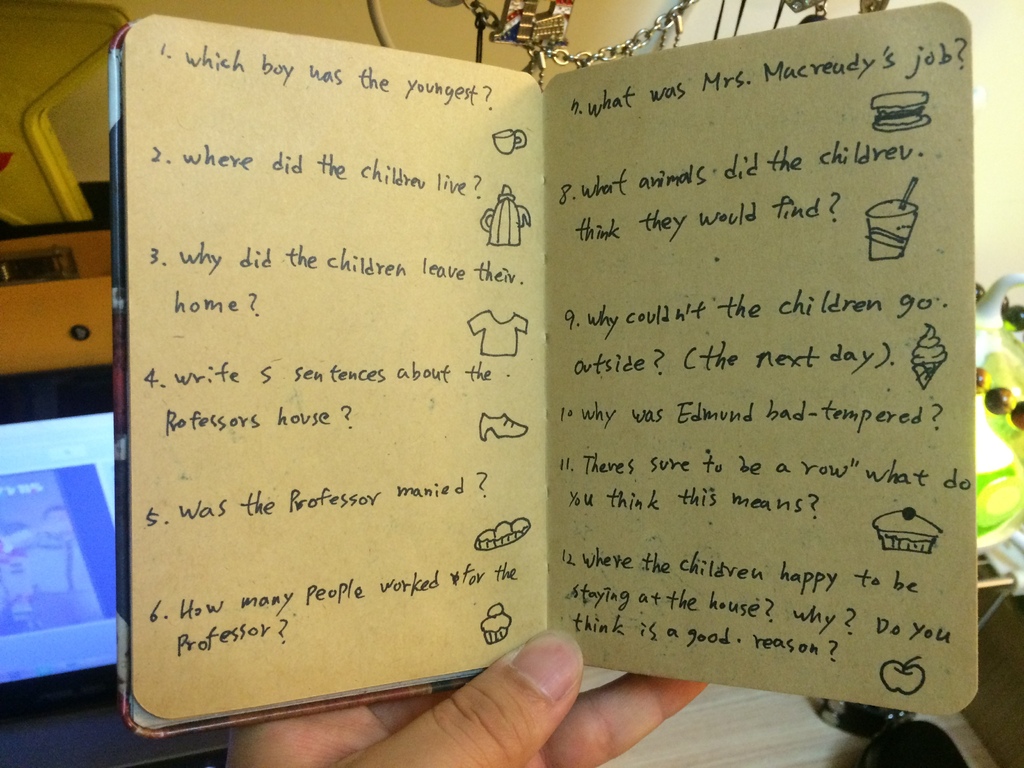 1. which boy was the youngest?
2. where did the children live?
3. why did the children leave their.
home?
4. write 5 sentences about the.
Rofessors house?
5. was the Professor manied?
6. How many people worked for the
Professor?
7. what was Mrs. Macready's job?
8. what animals did the children.
think they would find?
9. why couldn't the children go.
outside? (the next day).
10 why was Edmund bad-tempered?
11. Theres sure to be a row" what do
you think this means?
12 where the children happy to be
staying at the house? why? Do you
think is a good. reason?